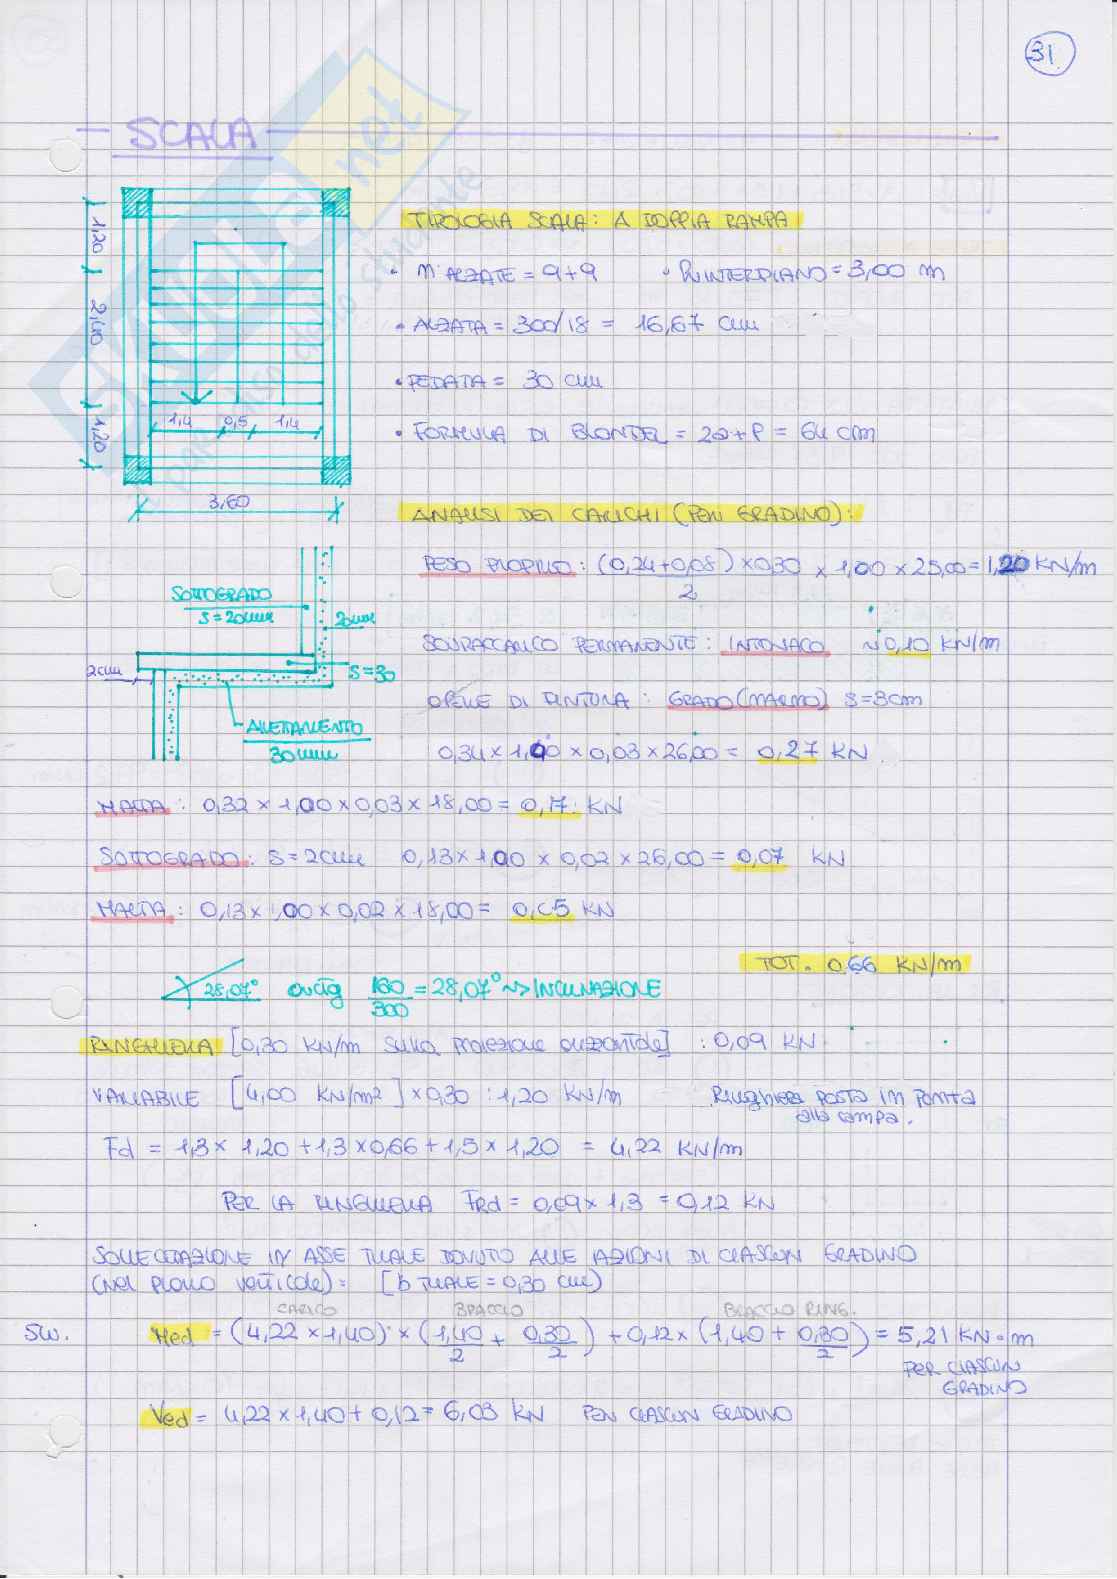 31
SCALA
TIPOLOGIA SCALA: A DOPPIA RAMPA
• N° ALZATE = 9+9 • INTERPIANO = 3,00 m
• ALZATA = 300/18 = 16,67 cm
• PEDATA = 30 cm
• FORMULA DI BLONDEL = 2a+P = 64 cm
1,20
2,40
1,20
1,4 0,5 1,4
3,60
ANALISI DEI CARICHI (PER GRADINO):
PESO PROPRIO: (0,24+0,08)/2 × 0,30 × 1,00 × 25,00 = 1,20 KN/m
SOVRACCARICO PERMANENTE: INTONACO ~ 0,10 KN/m
OPERE DI FINITURA: GRADO (MARMO) S=3cm
0,34 × 1,00 × 0,03 × 26,00 = 0,27 KN
SOTTOGRADO
S=20mm
20mm
2cm
S=30
ALLETTAMENTO
30mm
MALTA: 0,32 × 1,00 × 0,03 × 18,00 = 0,17 KN
SOTTOGRADO: S=2cm 0,13 × 1,00 × 0,02 × 26,00 = 0,07 KN
MALTA: 0,13 × 1,00 × 0,02 × 18,00 = 0,05 KN
TOT. 0,66 KN/m
28,07° arctg 160/300 = 28,07° ~> INCLINAZIONE
RINGHIERA [0,30 KN/m sulla proiezione orizzontale] : 0,09 KN
VARIABILE [4,00 KN/m²] × 0,30 : 1,20 KN/m Ringhiera posta in punta
alla rampa.
Fd = 1,3 × 1,20 + 1,3 × 0,66 + 1,5 × 1,20 = 4,22 KN/m
PER LA RINGHIERA FRd = 0,09 × 1,3 = 0,12 KN
SOLLECITAZIONE IN ASSE TRAVE DOVUTO ALLE AZIONI DI CIASCUN GRADINO
(nel piano verticale): [b TRAVE = 0,30 cm)
CARICO BRACCIO BRACCIO RING.
SW. Med = (4,22 × 1,40) × (1,40/2 + 0,30/2) + 0,12 × (1,40 + 0,30/2) = 5,21 KN·m
PER CIASCUN
GRADINO
Ved = 4,22 × 1,40 + 0,12 = 6,03 KN PER CIASCUN GRADINO